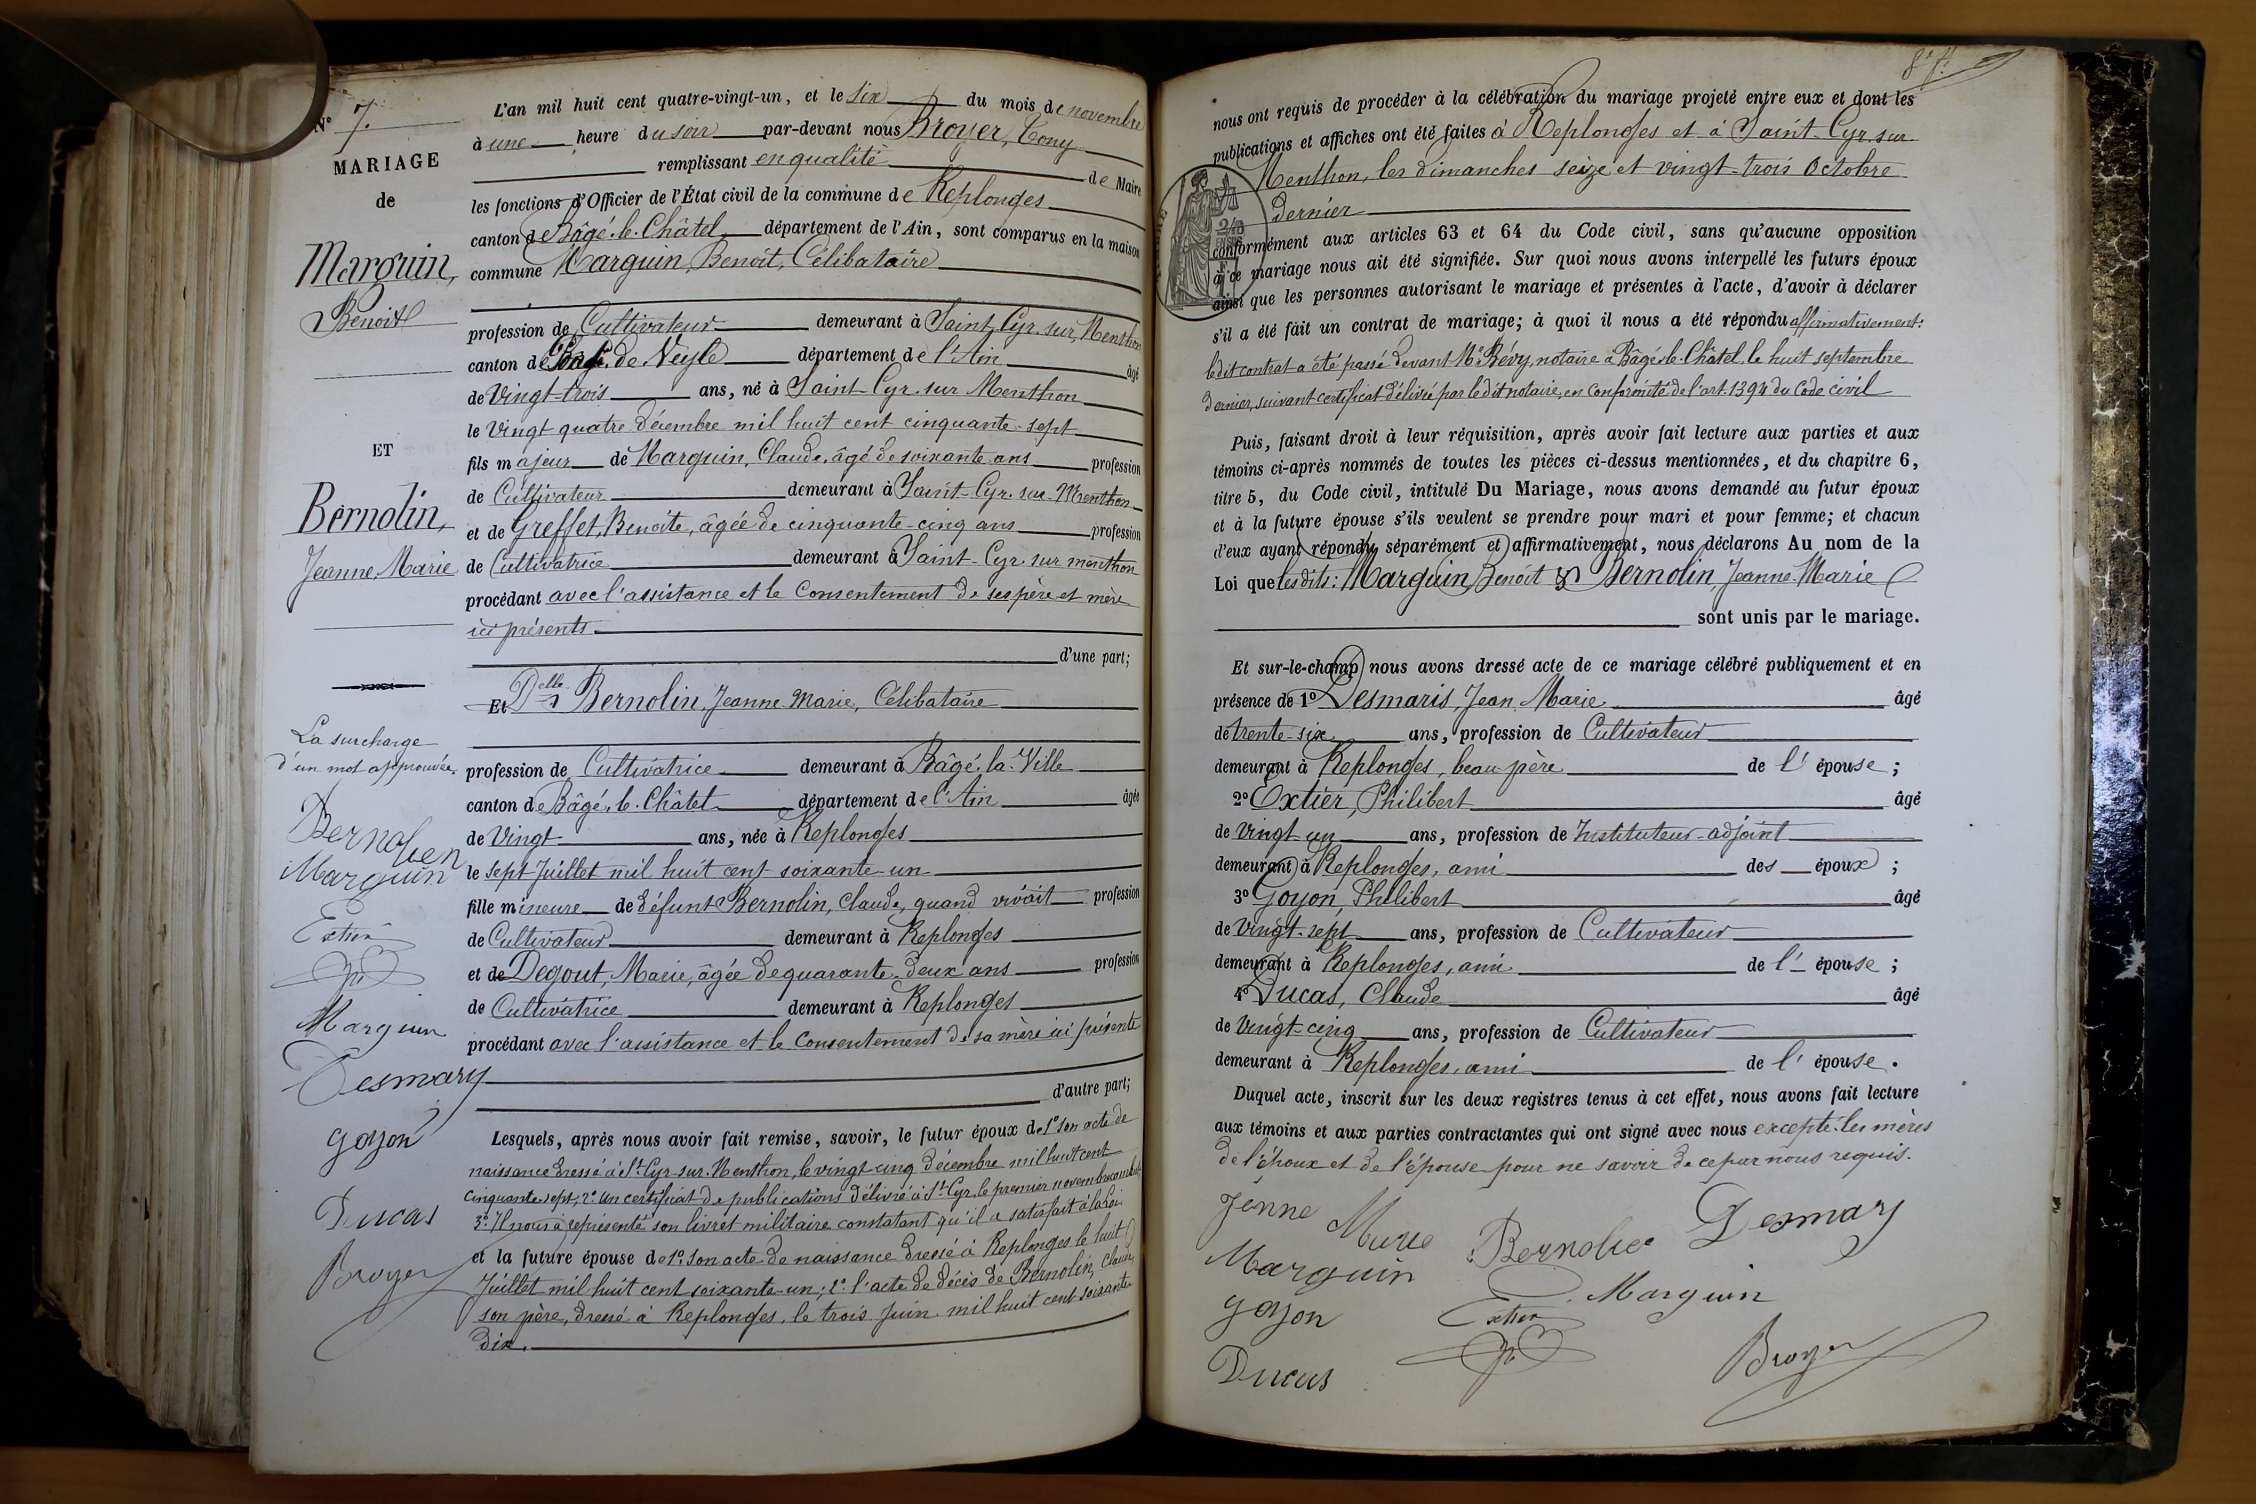 N° 7.
MARIAGE
de
Marguin,
Benoit
ET
Bernolin,
Jeanne Marie
La surcharge
d'un mot approuvée.
Bernolien
Marguin
Extier
Marguin
Desmary
goyon
Ducas
Broyer
L'an mil huit cent quatre-vingt-un, et le Six du mois de novembre
à une heure du soir par-devant nous Broyer, Tony
remplissant en qualité de Maire
les fonctions d'Officier de l'État civil de la commune de Replonges
canton de Bâgé-le-Châtel département de l'Ain, sont comparus en la maison
commune Marguin, Benoît, Célibataire
profession de Cultivateur demeurant à Saint-Cyr-sur-Menthon
canton de Pont-de-Veyle département de l'Ain âgé
de Vingt-trois ans, né à Saint-Cyr-sur Menthon
le Vingt quatre décembre mil huit cent cinquante-sept
fils majeur de Marguin, Claude, âgé de soixante ans profession
de Cultivateur demeurant à Saint-Cyr-sur-Menthon
et de Greffet, Benoîte, âgée de cinquante-cinq ans profession
de Cultivatrice demeurant à Saint-Cyr-sur menthon
procédant avec l'assistance et le Consentement de ses père et mère
ici présents
d'une part;
Et Delle Bernolin, Jeanne Marie, Célibataire
profession de Cultivatrice demeurant à Bâgé-la-Ville
canton de Bâgé-le-Châtel département de l'Ain âgée
de Vingt ans, née à Replonges
le sept Juillet mil huit cent soixante-un
fille mineure de défunt Bernolin, Claude, quand vivait profession
de Cultivateur demeurant à Replonges
et de Degout, Marie, âgée de quarante-deux ans profession
de Cultivatrice demeurant à Replonges
procédant avec l'assistance et le Consentement de sa mère ici présente
d'autre part;
Lesquels, après nous avoir fait remise, savoir, le futur époux de 1° son acte de
naissance dressé à St Cyr-sur-Menthon, le vingt-cinq décembre mil huit cent
cinquante-sept; 2° Un certificat de publications délivré à St Cyr, le premier novembre courant
3° Il nous a représenté son livret militaire constatant qu'il a satisfait à la loi
et la future épouse de 1° son acte de naissance dressé à Replonges le huit
Juillet mil huit cent soixante-un; 2° l'acte de décès de Bernolin, Claude,
son père, dressé à Replonges, le trois Juin mil huit cent soixante
dix.
nous ont requis de procéder à la célébration du mariage projeté entre eux et dont les
publications et affiches ont été faites à Replonges et à Saint-Cyr-sur
Menthon, les dimanches seize et vingt-trois Octobre
dernier
conformément aux articles 63 et 64 du Code civil, sans qu'aucune opposition
à ce mariage nous ait été signifiée. Sur quoi nous avons interpellé les futurs époux
ainsi que les personnes autorisant le mariage et présentes à l'acte, d'avoir à déclarer
s'il a été fait un contrat de mariage; à quoi il nous a été répondu affirmativement:
ledit contrat a été passé devant Me Bévy, notaire à Bâgé-le-Châtel le huit septembre
dernier, suivant certificat délivré par ledit notaire, en conformité de l'art. 1394 du Code civil
Puis, faisant droit à leur réquisition, après avoir fait lecture aux parties et aux
témoins ci-après nommés de toutes les pièces ci-dessus mentionnées, et du chapitre 6,
titre 5, du Code civil, intitulé Du Mariage, nous avons demandé au futur époux
et à la future épouse s'ils veulent se prendre pour mari et pour femme; et chacun
d'eux ayant répondu séparément et affirmativement, nous déclarons Au nom de la
Loi que les dits: Marguin, Benoît & Bernolin, Jeanne-Marie
sont unis par le mariage.
Et sur-le-champ nous avons dressé acte de ce mariage célébré publiquement et en
présence de 1° Desmaris, Jean Marie âgé
de trente-six ans, profession de Cultivateur
demeurant à Replonges, beau-père de l'épouse;
2° Extier, Philibert âgé
de Vingt-un ans, profession de Instituteur-adjoint
demeurant à Replonges, ami des époux;
3° Goyon, Philibert âgé
de Vingt-sept ans, profession de Cultivateur
demeurant à Replonges, ami de l'épouse;
4° Ducas, Claude âgé
de Vingt-cinq ans, profession de Cultivateur
demeurant à Replonges, ami de l'épouse.
Duquel acte, inscrit sur les deux registres tenus à cet effet, nous avons fait lecture
aux témoins et aux parties contractantes qui ont signé avec nous excepté les mères
de l'époux et de l'épouse pour ne savoir de ce par nous requis.
Jenne Marie Bernolie Desmary
Marguin Marguin
goyon Extier
Ducas Broyer